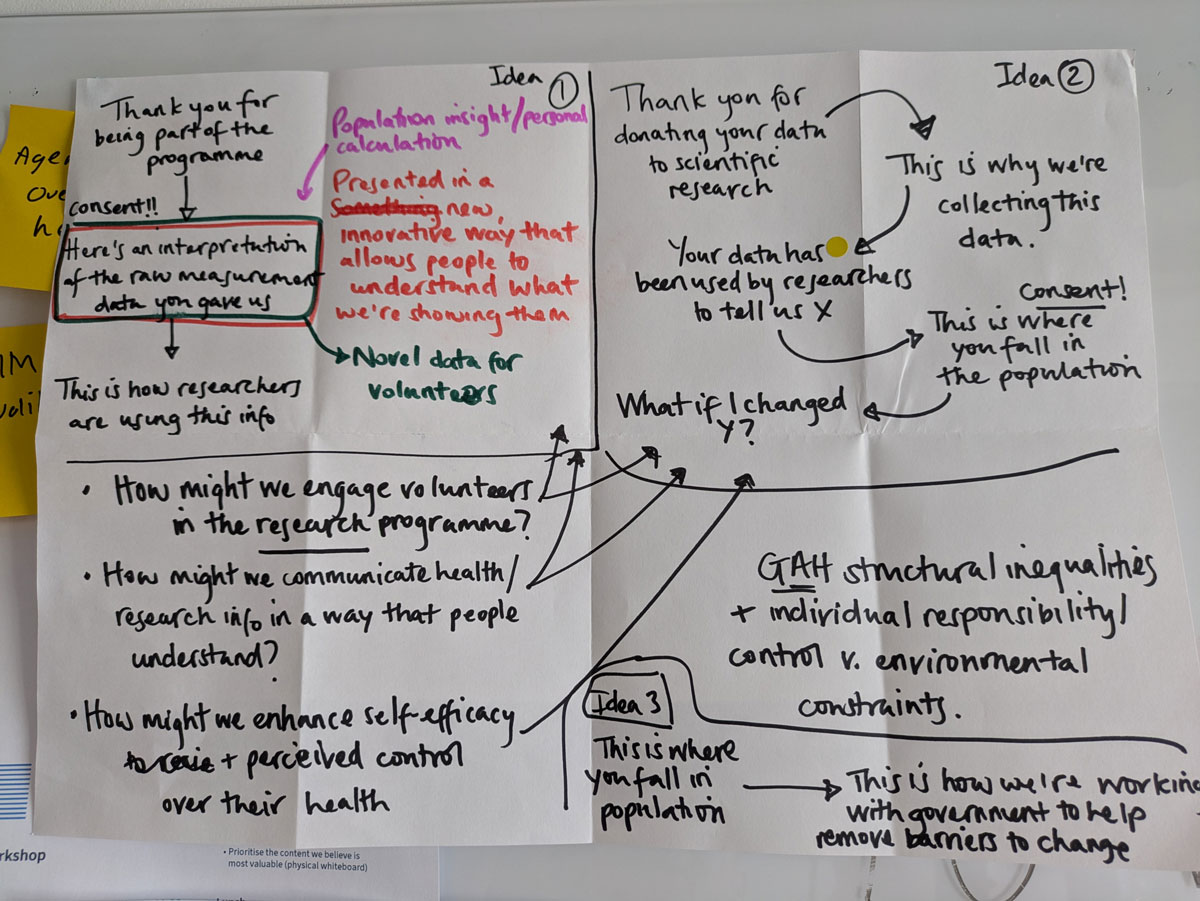 Idea ①
Thank you for
being part of the
programme
consent!!
Here's an interpretation
of the raw measurement
data you gave us
This is how researchers
are using this info
Population insight/personal
calculation
Presented in a
Something new,
innovative way that
allows people to
understand what
we're showing them
Novel data for
volunteers
Idea ②
Thank you for
donating your data
to scientific
research
This is why we're
collecting this
data.
Your data has
been used by researchers
to tell us X
consent!
This is where
you fall in
the population
What if I changed
Y?
• How might we engage volunteers
in the research programme?
• How might we communicate health/
research info in a way that people
understand?
• How might we enhance self-efficacy
+ perceived control
over their health
GAH structural inequalities
+ individual responsibility/
control v. environmental
constraints.
Idea 3
This is where
you fall in
population
This is how we're workin
with government to help
remove barriers to change
Age
Ove
h
IM
vali
rkshop
• Prioritise the content we believe is
most valuable (physical whiteboard)